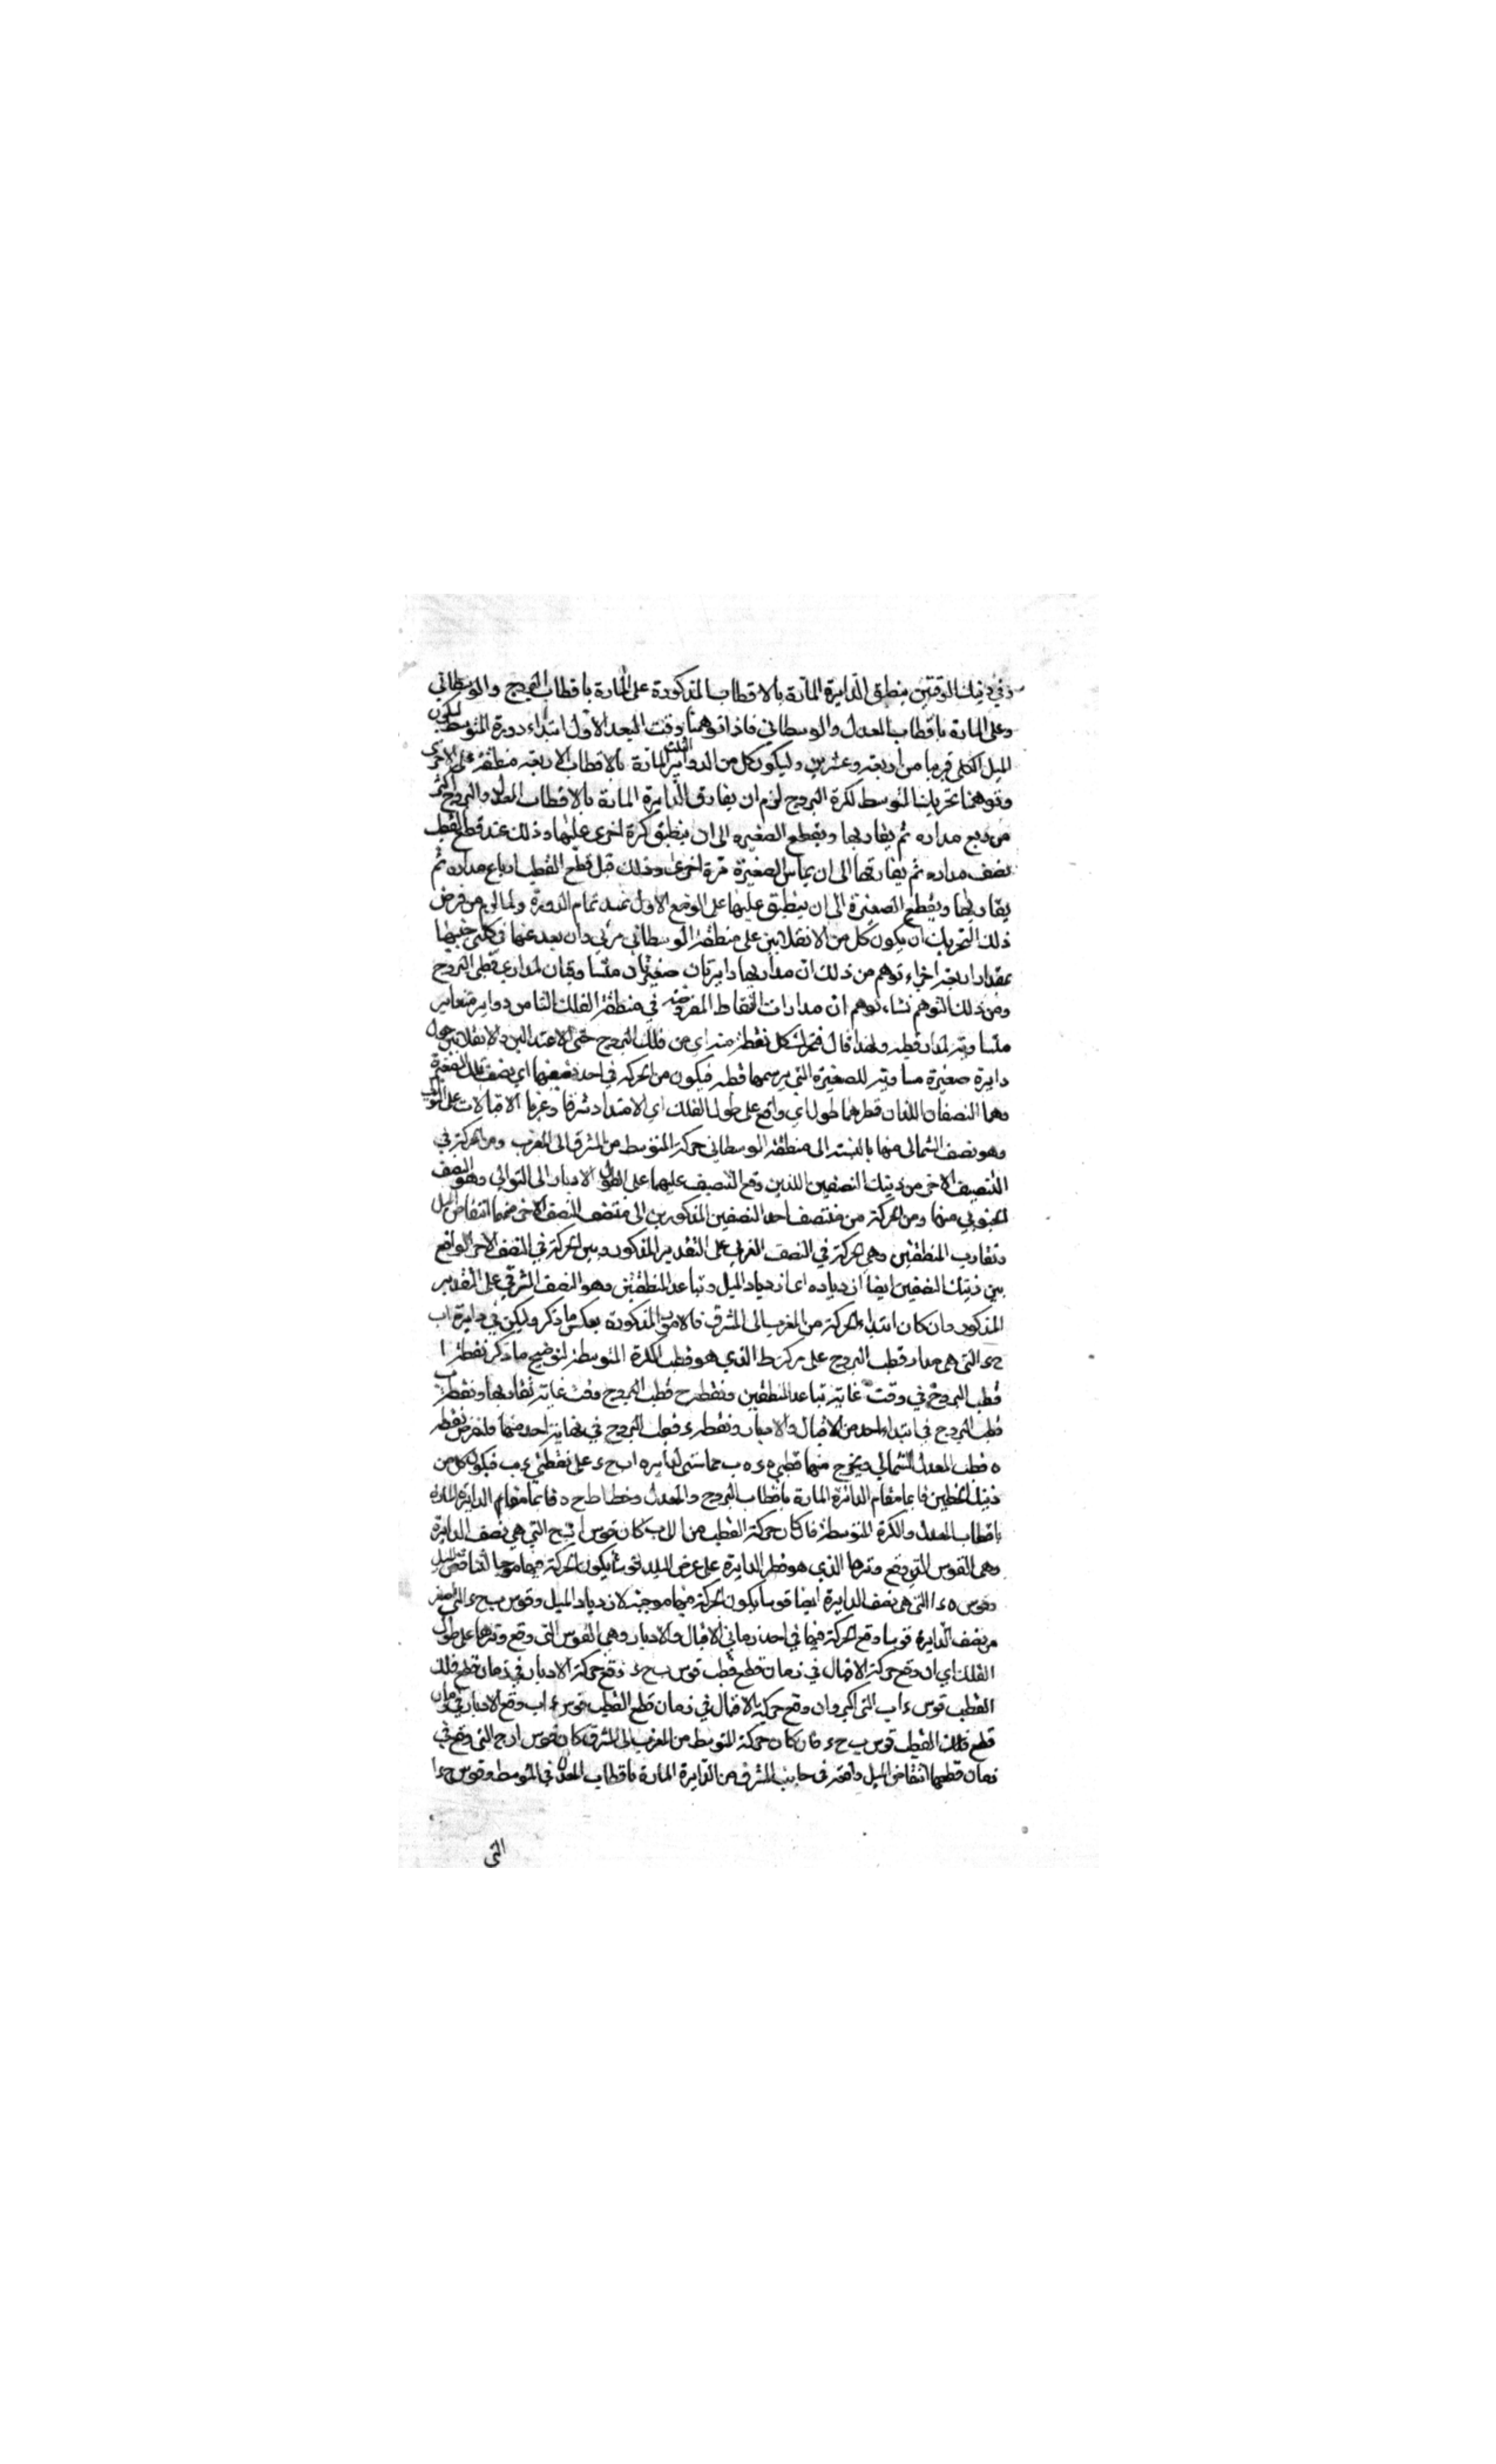 وفي ذينك الوقتين ينطبق الدايرة المارة بالاقطاب المذكورة على المارة باقطاب البروج والوسطاني
وعلى المارة باقطاب المعدل والوسطاني فاذا توهمنا وقت البعد الاول ابتداء دورة المتوسط ليكون
الميل الكلي قريبا من اربعة وعشرين وليكون كل من الدواير الثلث المارة بالاقطاب الاربعة منطبقة على الاخرى
وتوهمنا تحريك المتوسط لكرة البروج لزم ان يفارق الدايرة المارة بالاقطاب المعدل والبروج اكثر
من ربع مداره ثم يقاربها ويقطع الصغيرة الى ان ينطبق كرة اخرى عليها وذلك عند قطع القطب
نصف مداره ثم يفارقها الى ان يماس الصغيرة مرة اخرى وذلك قبل قطع القطب ارباع مداره ثم
يقاربها ويقطع الصغيرة الى ان ينطبق عليها على الوضع الاول عند تمام الدورة ولما لزم من فرض
ذلك التحريك ان يكون كل من الانقلابين على منطقة الوسطاني مرتين وان يبعد عنها في كلتي جنبتيها
بمقدار اربعة اجزاء توهم من ذلك ان مداريهما دايرتان صغيرتان متساويتان لمداري قطبي البروج
ومن ذلك التوهم نشاء توهم ان مدارات النقاط المفروضة في منطقة الفلك الثامن دواير متغايرة
متساوية لمدار قطبه ولهذا قال فتحرك كل نقطة منه اي من فلك البروج حتى الاعتدالين والانقلابين حول
دايرة صغيرة مساوية للصغيرة التي يرسمها قطبه فيكون من الحركة في احد نصفيها اي نصف تلك الصغيرة
وهما النصفان اللذان قطرهما طولا اي واقع على طول الفلك اي الامتداد شرقا وغربا الاقبال
وهو نصف الشمالي منها بالنسبة الى منطقة الوسطاني حركة المتوسط من المشرق الى المغرب ومن الحركة في
النصف الاخر من ذينك النصفين اللذين وقع التنصيف عليهما على الطول الادبار الى التوالي وهو النصف
الجنوبي منها ومن الحركة من منتصف احد النصفين المذكورين الى منتصف النصف الاخر منهما انتقاص الميل
وتقارب المنطقتين وهي الحركة في النصف الغربي على التقدير المذكور وبين الحركة في النصف الاخر الواقع
بين ذينك النصفين ايضا ازدياده اي ازدياد الميل وتباعد المنطقتين وهو النصف الشرقي على التقدير
المذكور وان كان ابتداء الحركة من المغرب الى المشرق فالامور المذكورة بعكس ما ذكر وليكن في دايرة اب
حء التي هي مدار قطب البروج على مركز ط الذي هو قطب الكرة المتوسطة لتوضيح ما ذكر نقطة ا
قطب البروج في وقت غاية تباعد المنطقتين ونقطة ح قطب البروج وقت غاية تقاربها ونقطة ب
قطب البروج في ابتداء احد من الاقبال والادبار ونقطة ء قطب البروج في نهاية احد منهما ولنفرض نقطة
ه قطب المعدل الشمالي ويخرج منها قطبي ه ء ه ب مماستي لدايرة اب ح ء على نقطتي ء ب فيكون كل من
ذينك الخطين قايما مقام الدائرة المارة باقطاب البروج والمعدل وخط ا ط ح ه قايما مقام الدايرة المارة
باقطاب المعدل والكرة المتوسطة فاذا كان حركة القطب من ا الى ب كان قوس ا ب ح التي هي نصف الدايرة
وهي القوس التي وقع وترها الذي هو قطر الدايرة على عرض البلد قوسا يكون الحركة فيها موجبا لتناقص الميل
وقوس ح ء ا التي هي نصف الدايرة ايضا قوسا يكون الحركة فيها موجبة لازدياد الميل وقوس ب ح ء التي اصغر
من نصف الدايرة قوسا وقع الحركة فيها في احد زماني الاقبال والادبار وهي القوس التي وقع وترها على طول
الفلك اي ان وقع حركة الاقبال في زمان قطع قطب قوس ب ح ء وقع حركة الادبار في زمان قطع فلك
القطب قوس ء اب التي اكبر وان وقع حركة الاقبال في زمان قطع القطب قوس ء اب وقع الادبار في زمان
قطع فلك القطب قوس ب ح ء فان كان حركة المتوسط من المغرب الى المشرق كان قوس ا ب ح التي وقع في
زمان قطعها انتقاص الميل واقعة في جانب المشرق من الدايرة المارة باقطاب المعدل في المتوسط وقوس ح ء ا
التي